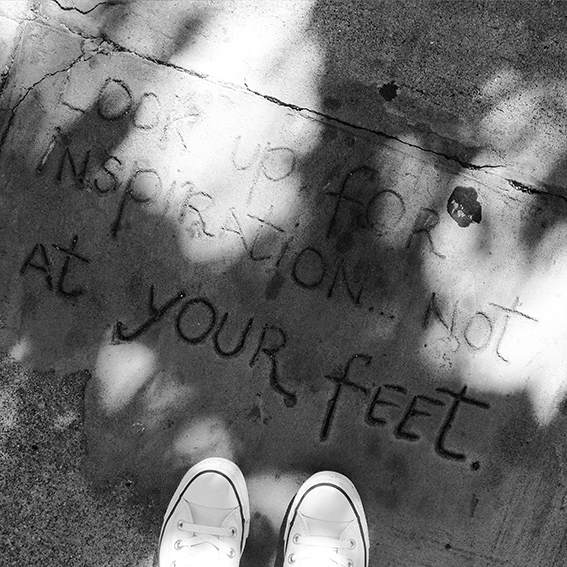 LOOK up fOR
iNSpiRATiON... NOt
At yOUR fEEt.